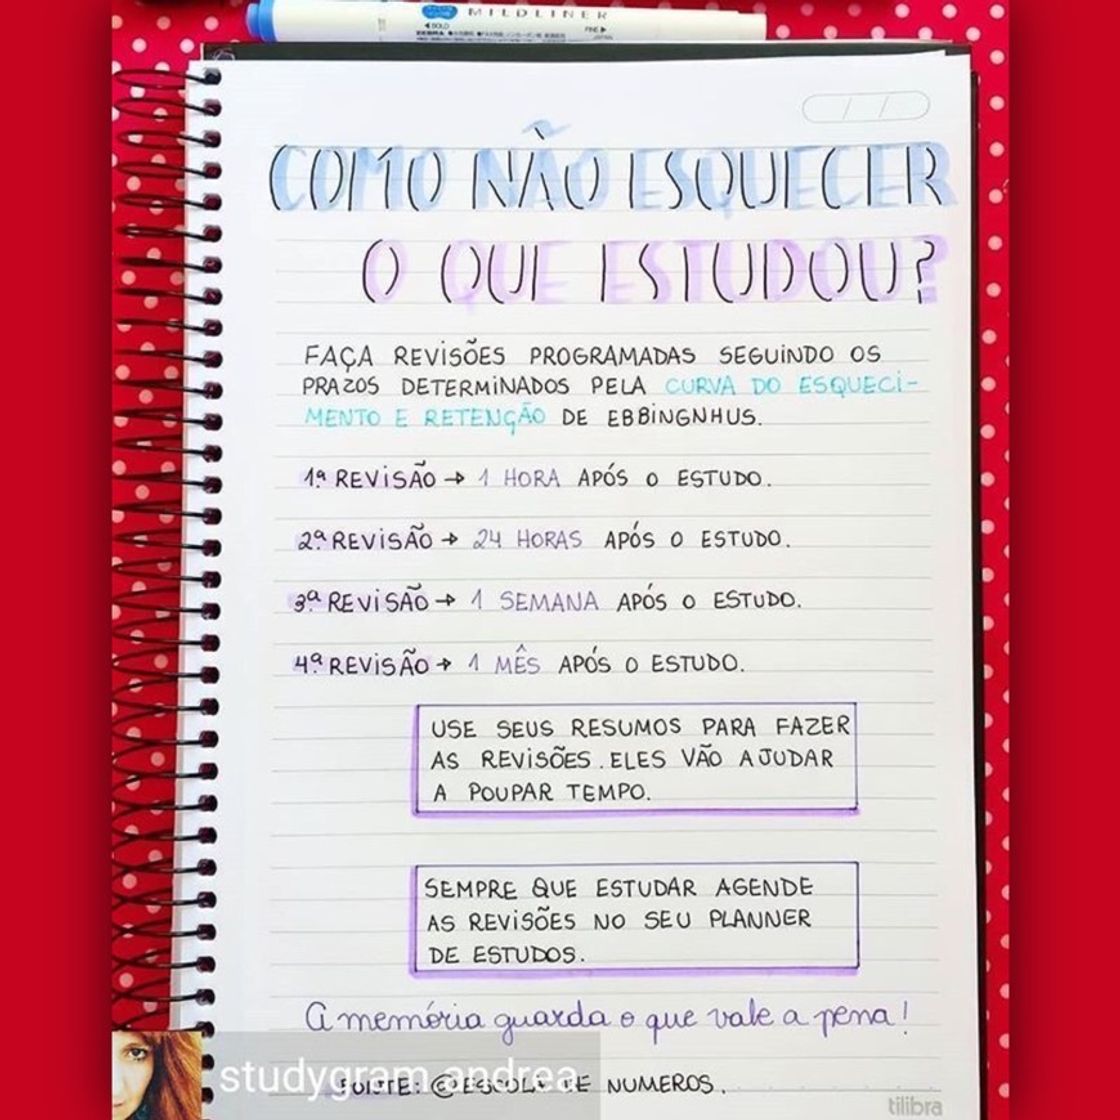 MILDLINER
BOLD
FINE
ZEBRA
COMO NÃO ESQUECER
O QUE ESTUDOU?
FAÇA REVISÕES PROGRAMADAS SEGUINDO OS
PRAZOS DETERMINADOS PELA CURVA DO ESQUECI-
MENTO E RETENÇÃO DE EBBINGNHUS.
1ª REVISÃO → 1 HORA APÓS O ESTUDO.
2ª REVISÃO → 24 HORAS APÓS O ESTUDO.
3ª REVISÃO → 1 SEMANA APÓS O ESTUDO.
4ª REVISÃO → 1 MÊS APÓS O ESTUDO.
USE SEUS RESUMOS PARA FAZER
AS REVISÕES. ELES VÃO AJUDAR
A POUPAR TEMPO.
SEMPRE QUE ESTUDAR AGENDE
AS REVISÕES NO SEU PLANNER
DE ESTUDOS.
A memória guarda o que vale a pena!
studygram.andrea
FONTE: @ESCOLA DE NUMEROS.
tilibra